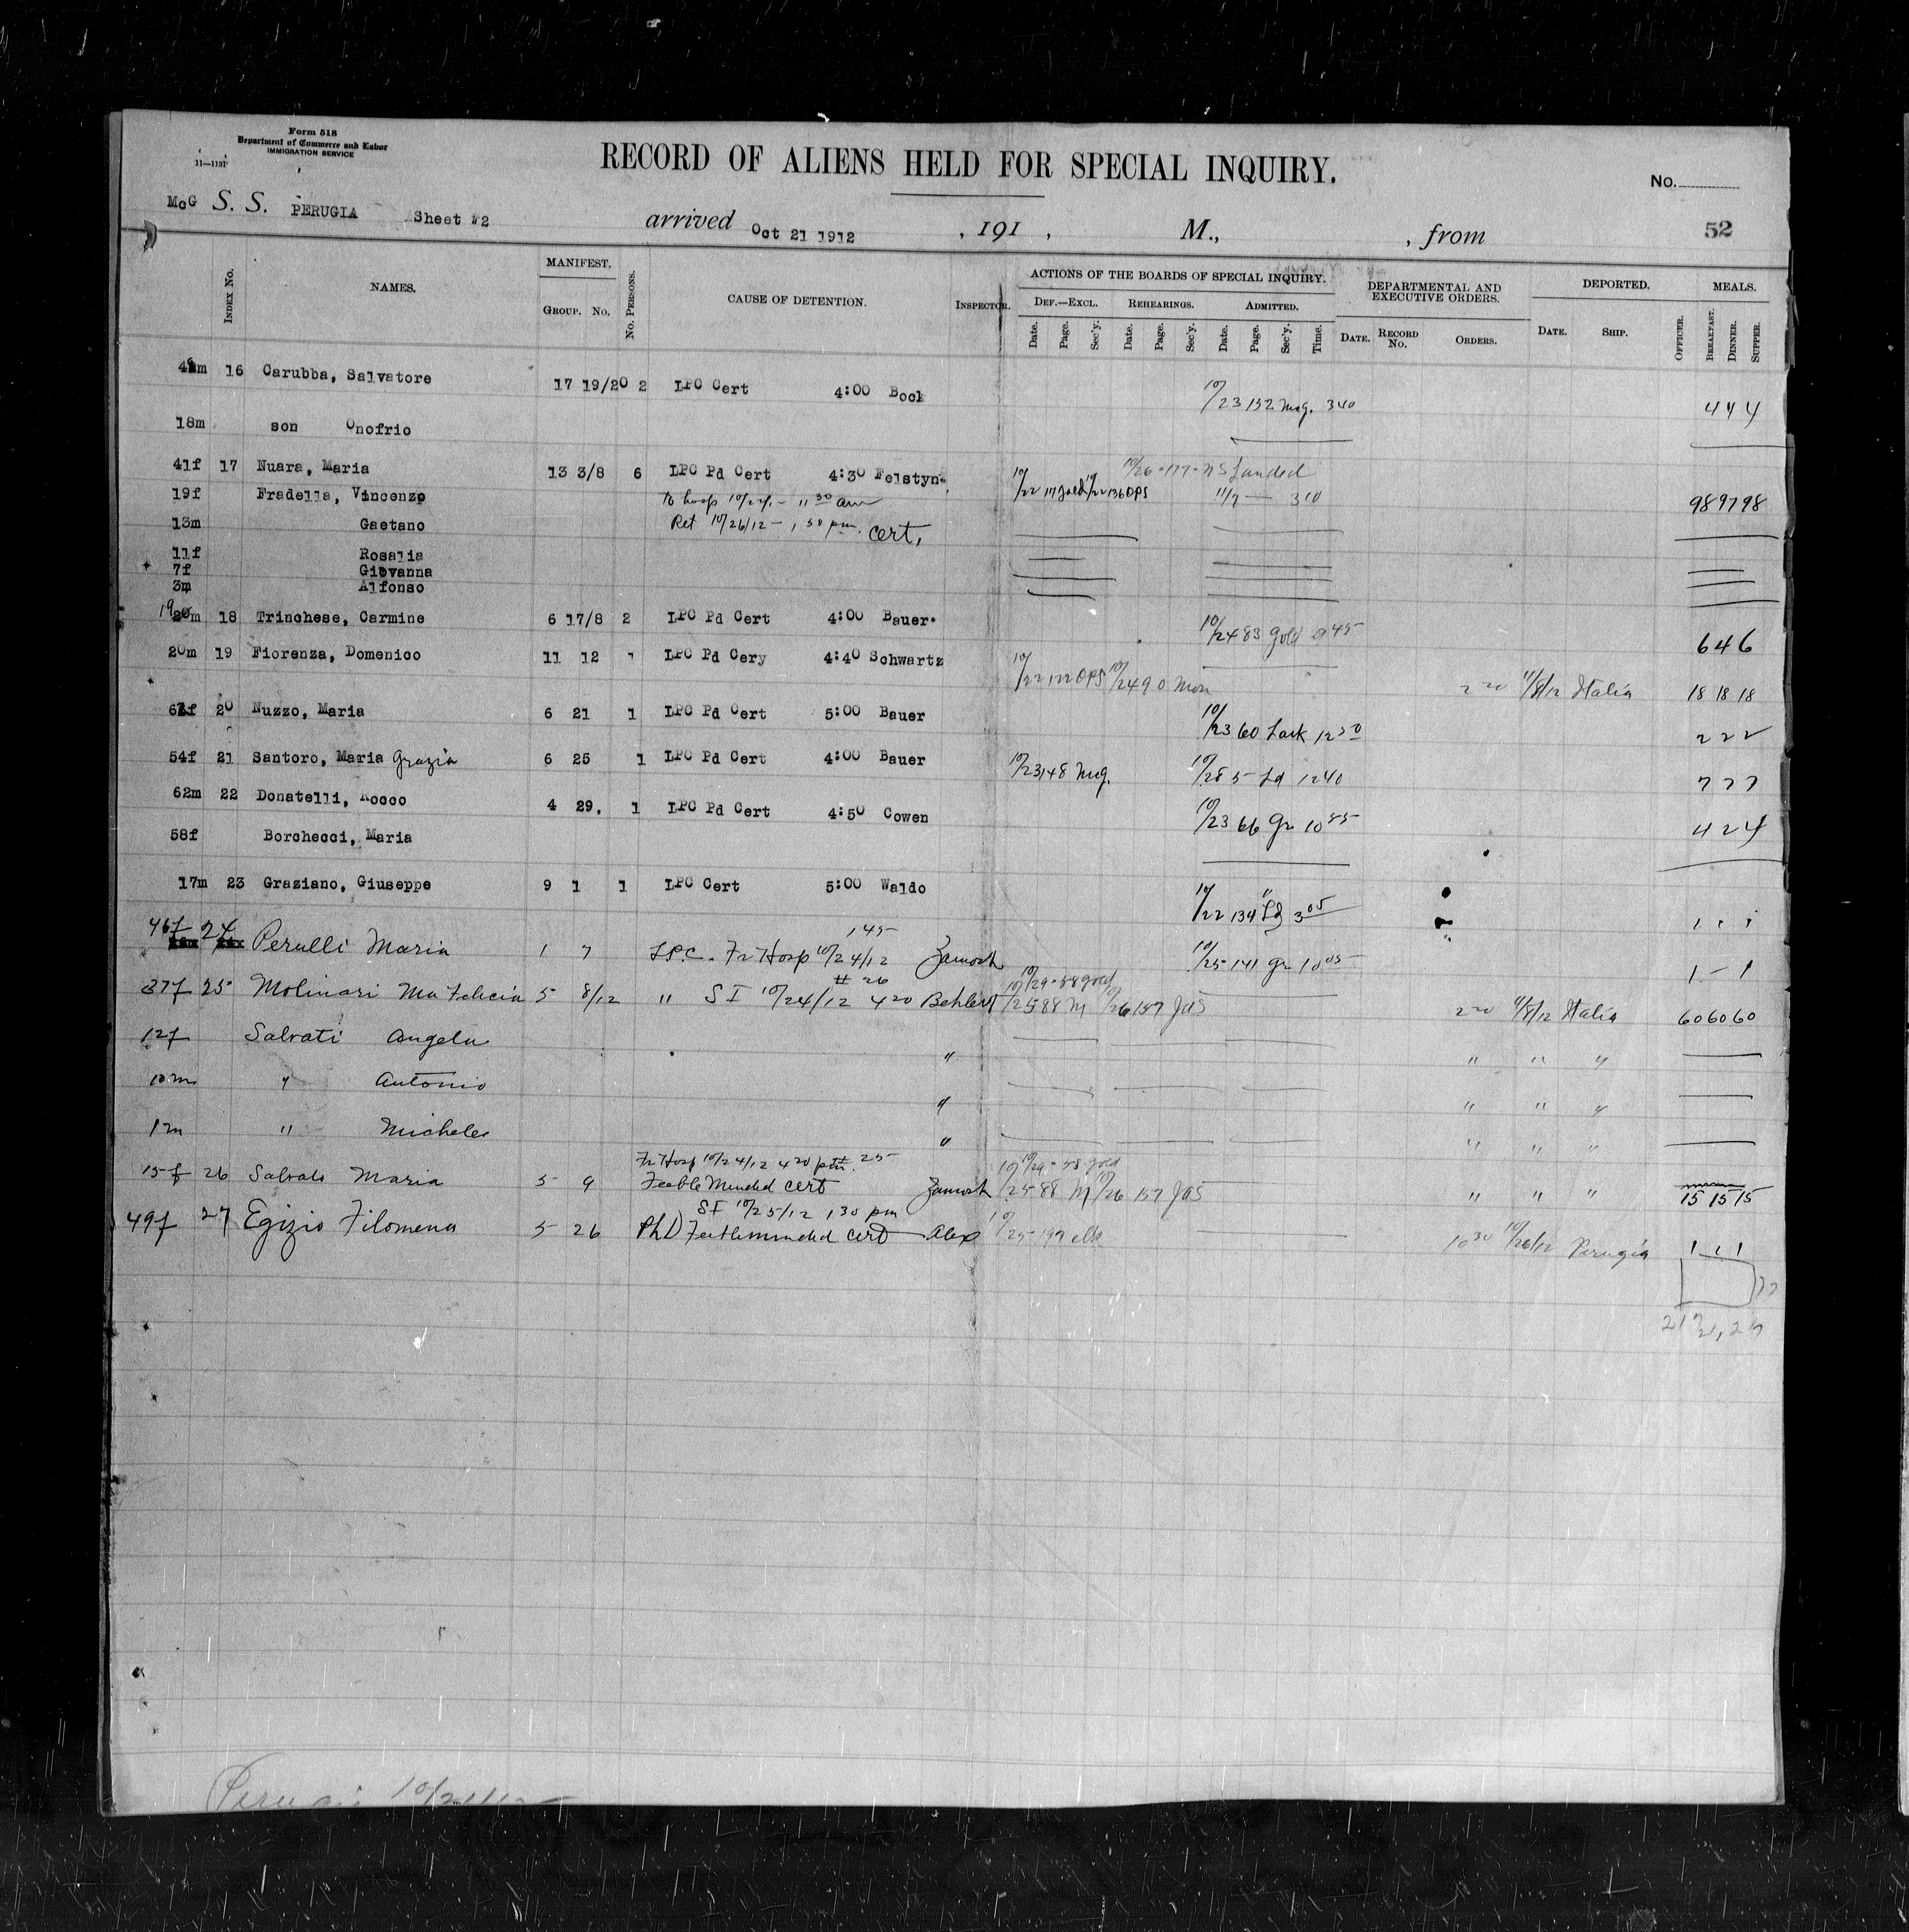 Form 518
Department of Commerce and Labor
IMMIGRATION SERVICE
11—1131
RECORD OF ALIENS HELD FOR SPECIAL INQUIRY.
No.
McG S. S. PERUGIA Sheet #2 arrived Oct 21 1912 , 191 , M., , from 52
INDEX No. NAMES. MANIFEST. GROUP. No. No. PERSONS. CAUSE OF DETENTION. INSPECTOR. ACTIONS OF THE BOARDS OF SPECIAL INQUIRY. DEPARTMENTAL AND EXECUTIVE ORDERS. DEPORTED. MEALS.
DEF.—EXCL. REHEARINGS. ADMITTED.
Date. Page. Sec'y. Date. Page. Sec'y. Date. Page. Sec'y. Time. DATE. RECORD No. ORDERS. DATE. SHIP. OFFICER. BREAKFAST. DINNER. SUPPER.
16 Carubba, Salvatore 17 19/20 2 LPC Cert 4:00 Bock 10/23 132 Mcg. 340 4 4 4
18m son Onofrio
41f 17 Nuara, Maria 13 3/8 6 LPC Pd Cert 4:30 Felstyn 10/26-177-NS Landed
19f Fradella, Vincenzo To hosp 11 30 am 10/22 117 Gold 10/22 136 OPS 11/7 — 310 98 97 98
13m Gaetano Ret 10/26/12 - 1 30 pm. cert,
11f Rosalia
7f Giovanna
3m Alfonso
19 m 18 Trinchese, Carmine 6 17/8 2 LPC Pd Cert 4:00 Bauer. 10/24 83 Gold 945 6 4 6
20m 19 Fiorenza, Domenico 11 12 1 LPC Pd Cery 4:40 Schwartz 10/22 122 OPS 10/24 90 Mon 2 00 11/8/12 Italia 18 18 18
20 Nuzzo, Maria 6 21 1 LPC Pd Cert 5:00 Bauer 10/23 60 Lark 12 30 2 2 2
54f 21 Santoro, Maria Grazia 6 25 1 LPC Pd Cert 4:00 Bauer 10/23 148 Mcg. 10/25 5 Ld 1240 7 7 7
62m 22 Donatelli, Rocco 4 29, 1 LPC Pd Cert 4:50 Cowen 10/23 66 Gr 10 55 4 2 4
58f Borchecci, Maria
17m 23 Graziano, Giuseppe 9 1 1 LPC Cert 5:00 Waldo 10/22 134 Ld 3 05 1 1 1
46f 24 Perulli Maria 1 7 LPC. Fr Hosp 10/24/12 145 Zamosh 10/25 141 Gr 10 05 1 - 1
37f 25 Molinari Ma Felicia 5 8/12 " S I 10/24/12 4 20 # 26 Behlert 10/29-58 Gold 10/25 88 M 10/26 157 JAS 2 00 11/8/12 Italia 60 60 60
12f Salvati Angela " " " "
10m " Antonio " " " "
1m " Michele " " " "
15f 26 Salvati Maria 5 9 Fr Hosp 10/24/12 4 20 pm # 25
Feeble Minded cert Zamosh 10/29-58 Gold 10/25 88 M 10/26 157 JAS " " " 15 15 15
49f 27 Egizio Filomena 5 26 S I 10/25/12 1 30 pm
PhD Feebleminded cert Alex 10/25-199 10 30 10/26/12 Perugia 1 1 1